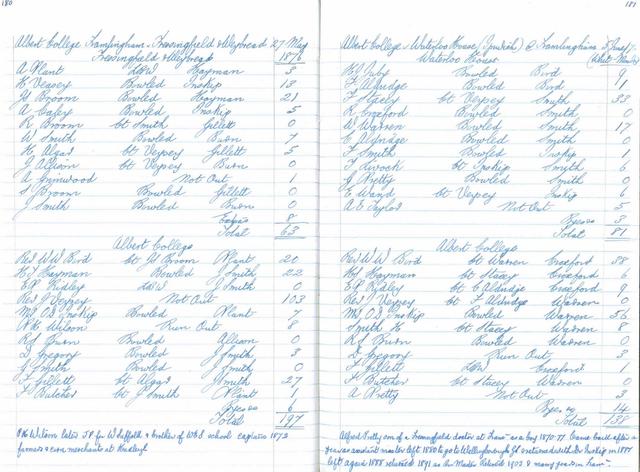 180
Albert College Framlingham v Fressingfield & Weybread 27 May
Fressingfield & Weybread 1876
A Plant LBW Hayman 3
K Veasey Bowled Inskip 13
G Broom Bowled Hayman 21
A Casey Bowled Inskip 5
R Broom Ct Smith Gillett 0
W Smith Bowled Burn 7
H Algar Ct Veysey Gillett 5
J Allison Ct Veysey Burn 0
A Grimwood Not Out 1
S Broom Bowled Gillett 0
J Smith Bowled Burn 0
Extras 8
Total 63
Albert College
Rev W W Bird Ct G Broom Plant 20
H T Hayman Bowled J Smith 22
E P Ridley LBW J Smith 0
Rev J Veysey Not Out 103
Mr O J Inskip Bowled Plant 7
P K Wilson Run Out 8
R J Burn Bowled Allison 0
D Gregory Bowled J Smith 3
G Smith Bowled J Smith 0
F Gillett Ct Algar J Smith 27
F Butcher Ct J Smith Plant 1
Byes 6
Total 197
Wilson later J.P. for W Suffolk & brother of school captain 1872
farmer & corn merchant at Hadleigh
181
Albert College v Waterloo House (Ipswich) @ Framlingham 5 June
Waterloo House
Juby Bowled Bird 9
F Aldridge Bowled Bird 1
Ct Veysey Smith 33
R Crexford Bowled Smith 0
A Warren Bowled Smith 17
C Aldridge Bowled Smith 0
F Smith Bowled Inskip 1
Ct Inskip Smith 6
Pretty Bowled Smith 0
Wand Ct Veysey Inskip 6
A E Taylor Not Out 5
Byes 3
Total 81
Albert College
Rev W W Bird Ct Warren Crexford 38
H T Hayman Ct Stacey Crexford 6
E P Ridley Ct C Aldridge Crexford 9
Rev J Veysey Ct F Aldridge Warren 0
Mr O J Inskip Bowled Warren 56
Smith Ct Stacey Warren 8
R J Burn Bowled Warren 0
D Gregory Run Out 3
F Gillett LBW Crexford 1
F Butcher Ct Stacey Warren 0
A Pretty Not Out 3
Byes 14
Total 138
Alfred Pretty son of a Fressingfield doctor at Fram as a boy 1870-77 Came back after a
year as assistant master left 1880 to go to Wellingborough GS returned with Dr Inskip in 1887
left again 1888 returned 1891 as Art Master Retired